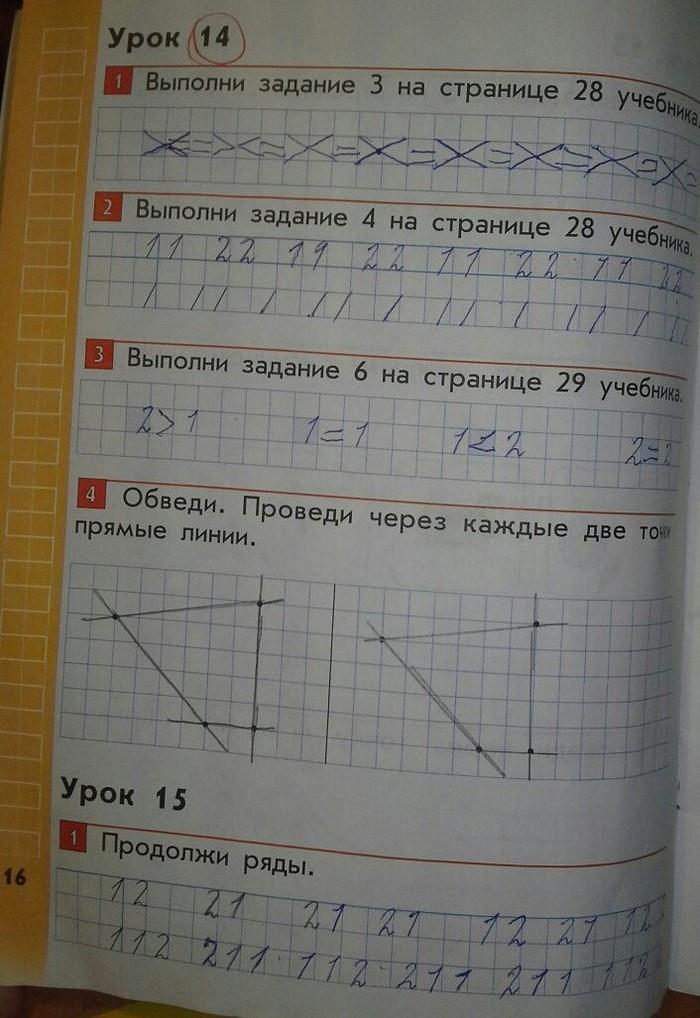 Урок 14
1 Выполни задание 3 на странице 28 учебника.
2 Выполни задание 4 на странице 28 учебника.
11 22 11 22 11 22 11 22
1 11 1 11 1 11 1 11 1 11
3 Выполни задание 6 на странице 29 учебника.
2>1 1=1 1<2 2=2
4 Обведи. Проведи через каждые две точки
прямые линии.
Урок 15
1 Продолжи ряды.
12 21 21 21 12 21 12
112 211 112 211 211 112
16